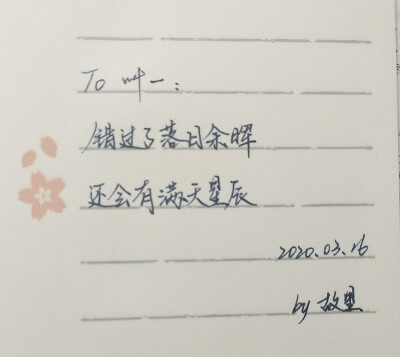 To 叶一:
错过了落日余晖
还会有满天星辰
2020.03.16
by 故里